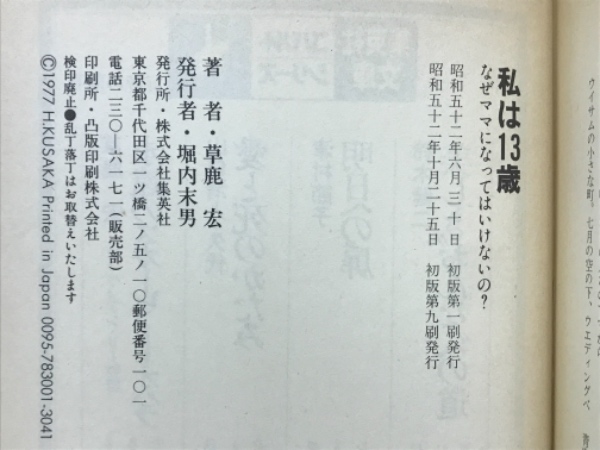 私は13歳
なぜママになってはいけないの？
昭和五十二年六月三十日　初版第一刷発行
昭和五十二年十月二十五日　初版第九刷発行
著　者・草鹿　宏
発行者・堀内末男
発行所・株式会社集英社
東京都千代田区一ツ橋二ノ五ノ一〇郵便番号一〇一
電話二三〇―六一七一(販売部)
印刷所・凸版印刷株式会社
検印廃止●乱丁落丁はお取替えいたします
©1977 H.KUSAKA Printed in Japan 0095-783001-3041
ウイサムの小さな町。七月の空の下、ウエディングベ